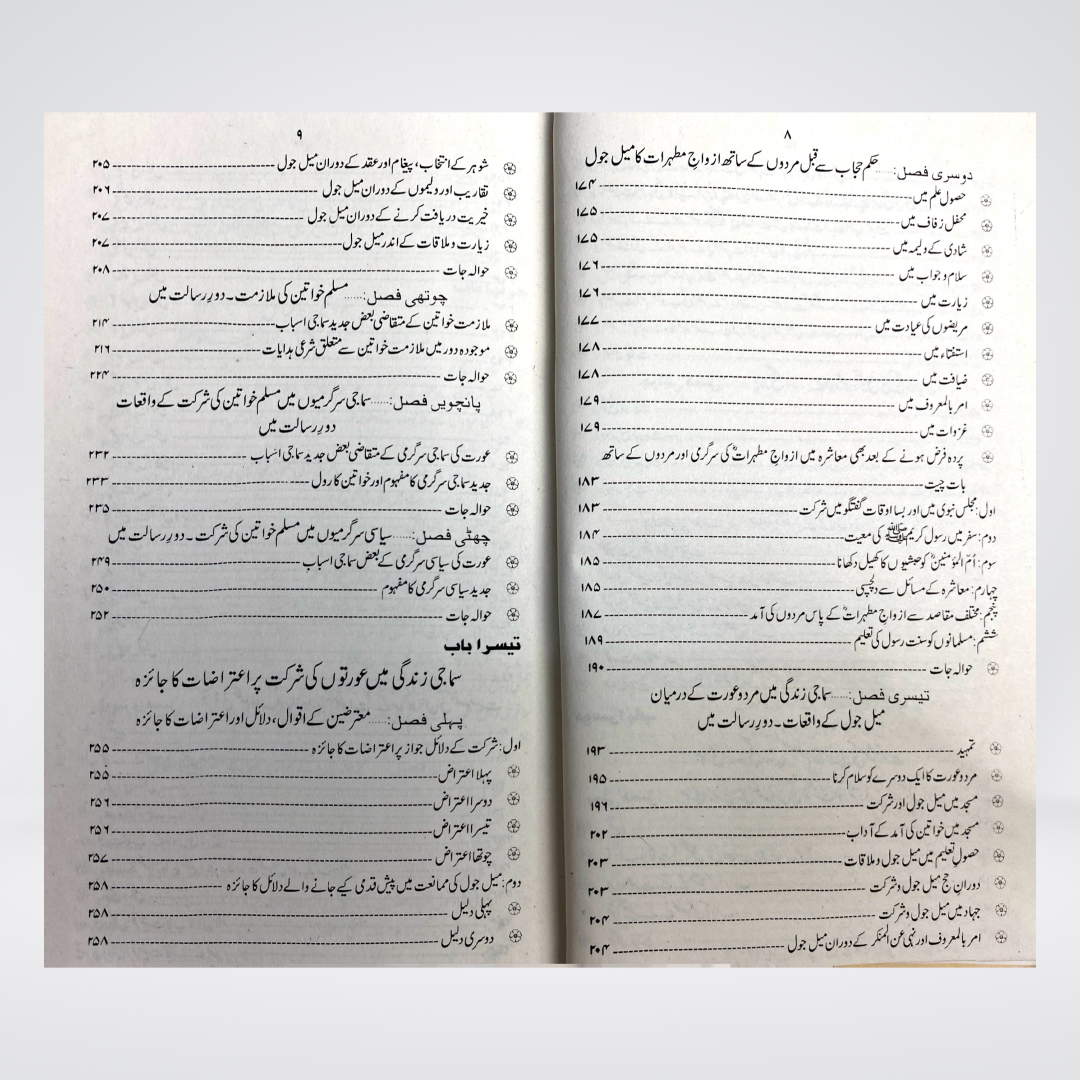 ۸
دوسری فصل:......حکم حجاب سے قبل مردوں کے ساتھ ازواجِ مطہرات کا میل جول
حصول علم میں ۱۷۴
محفل زفاف میں ۱۷۵
شادی کے ولیمہ میں ۱۷۵
سلام و جواب میں ۱۷۶
زیارت میں ۱۷۶
مریضوں کی عیادت میں ۱۷۷
استفتاء میں ۱۷۸
ضیافت میں ۱۷۸
امر بالمعروف میں ۱۷۹
غزوات میں ۱۷۹
پردہ فرض ہونے کے بعد بھی معاشرہ میں ازواجِ مطہراتؓ کی سرگرمی اور مردوں کے ساتھ
بات چیت ۱۸۳
اول: مجلس نبوی میں اور بسا اوقات گفتگو میں شرکت ۱۸۳
دوم: سفر میں رسول کریم ﷺ کی معیت ۱۸۴
سوم: اُمّ المؤمنینؓ کو حبشیوں کا کھیل دکھانا ۱۸۵
چہارم: معاشرہ کے مسائل سے دلچسپی ۱۸۵
پنجم: مختلف مقاصد سے ازواجِ مطہراتؓ کے پاس مردوں کی آمد ۱۸۷
ششم: مسلمانوں کو سنت رسول کی تعلیم ۱۸۹
حوالہ جات ۱۹۰
تیسری فصل:......سماجی زندگی میں مرد و عورت کے درمیان
میل جول کے واقعات۔دورِ رسالت میں
تمہید ۱۹۳
مرد و عورت کا ایک دوسرے کو سلام کرنا ۱۹۵
مسجد میں میل جول اور شرکت ۱۹۶
مسجد میں خواتین کی آمد کے آداب ۲۰۲
حصولِ تعلیم میں میل جول و ملاقات ۲۰۳
دورانِ حج میل جول و شرکت ۲۰۳
جہاد میں میل جول و شرکت ۲۰۴
امر بالمعروف اور نہی عن المنکر کے دوران میل جول ۲۰۴
۹
شوہر کے انتخاب، پیغام اور عقد کے دوران میل جول ۲۰۵
تقاریب اور ولیموں کے دوران میل جول ۲۰۶
خیریت دریافت کرنے کے دوران میل جول ۲۰۷
زیارت و ملاقات کے اندر میل جول ۲۰۷
حوالہ جات ۲۰۸
چوتھی فصل:......مسلم خواتین کی ملازمت۔دورِ رسالت میں
ملازمت خواتین کے متقاضی بعض جدید سماجی اسباب ۲۱۴
موجودہ دور میں ملازمت خواتین سے متعلق شرعی ہدایات ۲۱۶
حوالہ جات ۲۲۴
پانچویں فصل:......سماجی سرگرمیوں میں مسلم خواتین کی شرکت کے واقعات
دورِ رسالت میں
عورت کی سماجی سرگرمی کے متقاضی بعض جدید سماجی اسباب ۲۳۲
جدید سماجی سرگرمی کا مفہوم اور خواتین کا رول ۲۳۳
حوالہ جات ۲۳۵
چھٹی فصل:......سیاسی سرگرمیوں میں مسلم خواتین کی شرکت۔دورِ رسالت میں
عورت کی سیاسی سرگرمی کے بعض سماجی اسباب ۲۴۹
جدید سیاسی سرگرمی کا مفہوم ۲۵۰
حوالہ جات ۲۵۲
تیسرا باب
سماجی زندگی میں عورتوں کی شرکت پر اعتراضات کا جائزہ
پہلی فصل:......معترضین کے اقوال، دلائل اور اعتراضات کا جائزہ
اول: شرکت کے دلائل جواز پر اعتراضات کا جائزہ ۲۵۵
پہلا اعتراض ۲۵۵
دوسرا اعتراض ۲۵۶
تیسرا اعتراض ۲۵۶
چوتھا اعتراض ۲۵۷
دوم: میل جول کی ممانعت میں پیش قدمی کیے جانے والے دلائل کا جائزہ ۲۵۸
پہلی دلیل ۲۵۸
دوسری دلیل ۲۵۸